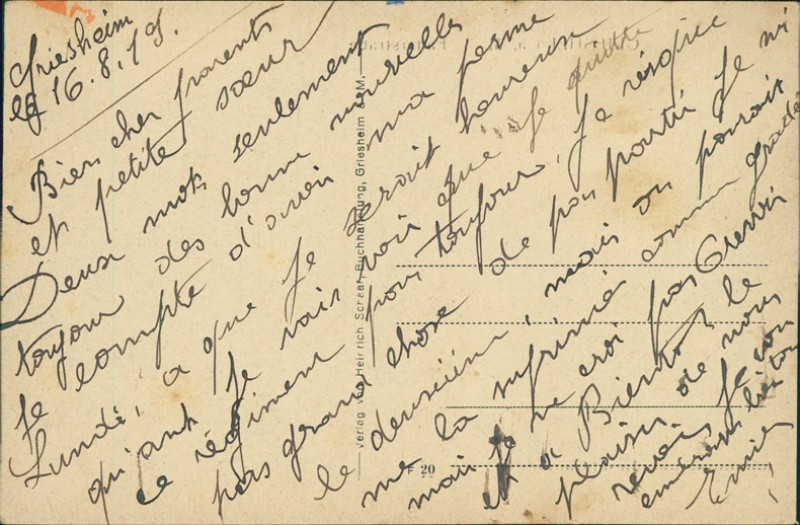 Griesheim
le 16.8.19.
Bien cher parents
et petite sœur
Deux mots seulement
toujour des bonne nouvelles
Je compte d'avoir ma perme
Lundi, a que je serait heureux
qu'ant je vais voir que je quitte
ce régiment pour toujour, Je résque
pas grand chose de pas partir je ni
le deuxième, mais on pourait
me la suprimés comme grade
mais je ne croi pas
et a Bientot le
plaisir de nous
revoir Je vou
embrasse bien
Emile
Verlag von Heinrich Schraaf, Buchhandlung, Griesheim a. M.
F 20